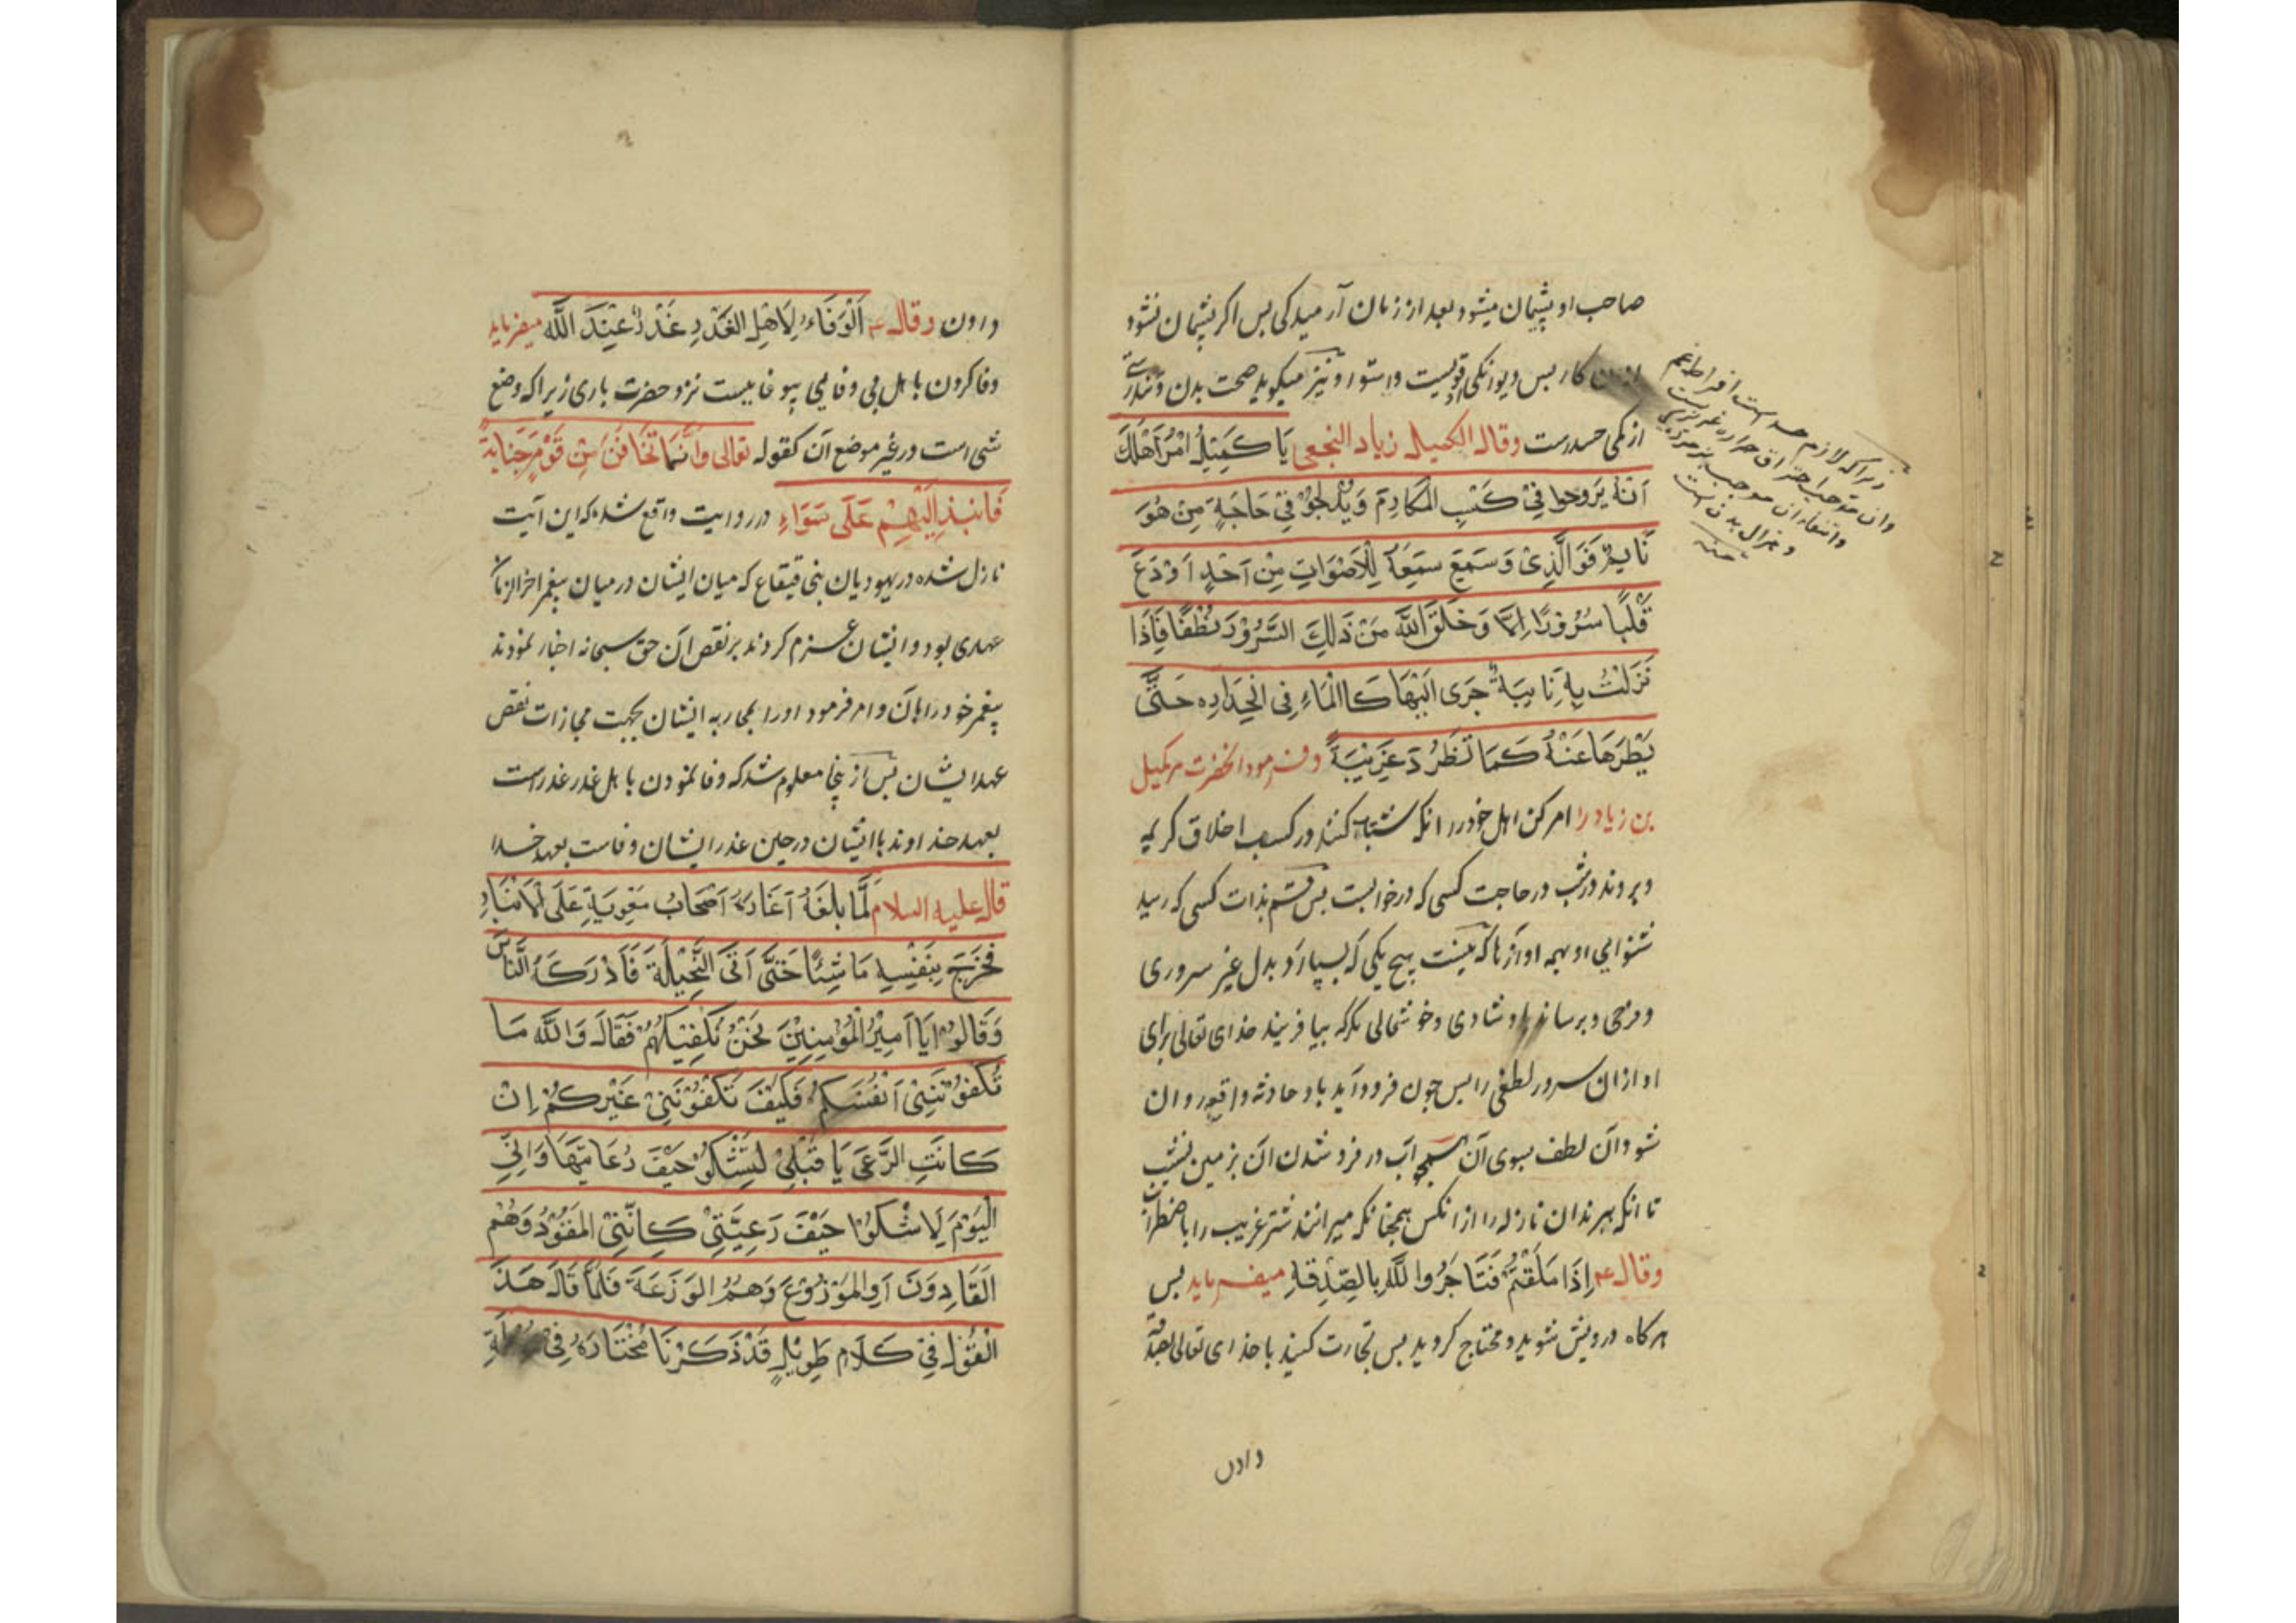 صاحب او پشیمان میشود بعد از زمان آرمیدکی بس اکر پشیمان نشود
کار بس دیوانکی قویست و استوار و نیز میکوید صحت بدن و تندرستی
از کمی حسدست وقال لکمیل زیاد النجعی یَا کُمَیْلُ امْرُ اَهْلَكَ
اَنْ یَرُوحوا فِیْ کَسْبِ المَکَارِمِ وَ یُدْلِجُوْ فِیْ حَاجَةِ مِنْ هُوَ
نَایِمٌ فَوَ الَّذِیْ وَسَمِعَ سَمِعَهُ لِلْاَصْوَاتِ مِنْ اَحَدٍ اَوْدَعَ
قَلْبًا سُرُوْرًا اِلَّا وَ خَلَقَ اللَّه مَنْ ذَلِكَ السَّرُوْرِ لُطْفًا فَاِذَا
نَزَلَتْ بِهِ نَایِبَةٌ جَرَی اِلَیْهَا کَاالْمَاءِ فِی انْحِدَارِه حَتَّی
یَطْرَهَا عَنْهُ کَمَا تَطْرُدَ غَرِیْبَةُ وفرمود انحضرت مرکمیل
بن زیاد را امر کن اهل خود را انکه شتاب کنند در کسب اخلاق کریمه
و بروند درشب در حاجت کسی که در خوابست بس قسم بذات کسی که رسید
شنوایی او بهمه اوازها که نیست هیچ یکی که بسپارد بدل غیر سروری
و فرحی و برساند او شادی و خوشحالی مکر که بیافریند خدای تعالی برای
او ازان سرور لطفی را بس چون فرود آید باو حادثه واقعه روان
شود آن لطف بسوی آن همچو آب در فرو شدن ان بزمین نشیب
تا انکه ببرند ان نازله را از انکس همچنانکه میرانند شتر غریب را باضطرار
وقال ع اِذَا مَلَقْتُمْ فَتَاجَرُوا لَلَّهَ بِالصِّدِقَةِ میفرماید بس
هرکاه درویش شوید و محتاج کردید بس تجارت کنید با خدای تعالی بصدقه
دادن
زیرا که لازم حسدست افراط غم
وان موجب احتراق حرارة غریزیست
منه
دادن وقال ع اَلْوَفَاءُ لِاَهْلِ الغَدْرِ غَدْرٌ عِنْدَ اللَّه میفرماید
وفا کردن با اهل بی وفایی بیوفاییست نزد حضرت باری زیرا که وضع
شی است در غیر موضع آن کقوله تعالی وَاِنَّمَا تَخَافَنَّ مِنْ قَوْمٍ خِیَانَةً
فَانْبِذْ اِلَیْهِمْ عَلَی سَوَاءٍ در روایت واقع شده که این آیت
نازل شده در یهودیان بنی قینقاع که میان ایشان در میان پیغمبر اخر الزمان
عهدی بود و ایشان عزم کردند بر نقض ان حق سبحانه اخبار نمودند
پیغمبر خود را باآن و امر فرمود او را بمحاربه ایشان بجهت مجازات نقض
عهد ایشان بس از ینجا معلوم شد که وفا نمودن با اهل غدر غدرست
بعهد خداوند با ایشان در حین غدر ایشان وفاست بعهد خدا
قال علیه السلام لَمَّا بلَغَهُ اَغَارَةُ اَصْحَابُ مَعْوِیَةِ عَلَی لْاَنْبَارِ
فَخَرَجَ بِنَفْسِهِ مَاشِیًا حَتَّی اَتَی النُّخَیْلَةَ فَاَدْرَکَهُ النَّاسُ
وَقَالُوْا یَا اَمِیْرُ الْمُؤْمِنِیْنَ نَحْنُ نَکْفِیْکَهُمْ فَقَالَ وَاللَّه مَا
تَکْفُوْنَنِیْ اَنْفُسَکُمْ فَکَیْفَ تَکْفُوْنَنِیْ غَیْرِکُمْ اِنْ
کَانَتِ الرَّعَیَ یَا قَبْلِیْ لَیَشْکُوْ حَیْفَ رُعَاتِهَا وَ اِنِّی
الْیَوْمَ لَاشْکُوْا حَیْفَ رَعِیَّتِیْ کَاَنَّنِیْ المَقُوْدُ وَهُمْ
الَقَادِوَنَ اَوِ المَوْزُوْعُ وَهُمُ الوَزَعَةَ فَلَمَّا قَالَ هَذَ
الْقُوْلَ فِیْ کَلَامٍ طَوِیْلٍ قَدْ ذَکَرْنَا مُخْتَارَهُ فِیْ